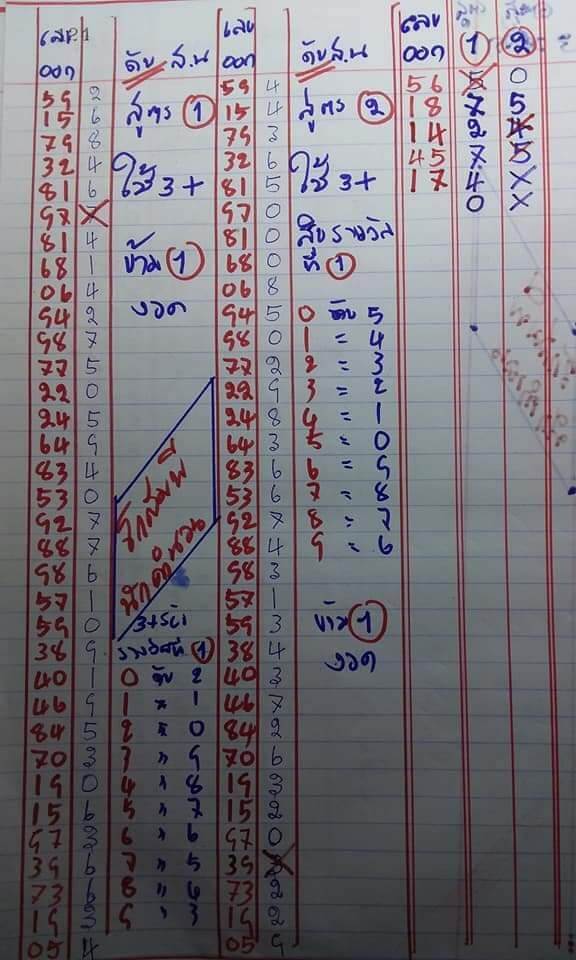 เลข
ออก
ดับ ส.น
สูตร 1
ใช้ 3+
ข้าม 1
งวด
59 2
15 6
79 8
32 4
81 6
97
81 4
68 1
06 4
94 2
98 7
77 5
22 0
24 5
64 9
83 4
53 0
92 7
88 7
98 6
57 1
59 0
38 9
40 1
46 9
84 5
70 3
19 0
15 6
97 3
39 6
73 6
19 3
05 4
รางวัลที่ 1
0 ดับ 2
1 " 1
2 " 0
3 " 9
4 " 8
5 " 7
6 " 6
7 " 5
8 " 4
9 " 3
เลข
ออก
ดับ ส.น
สูตร 2
ใช้ 3+
สิบรางวัล
ที่ 1
59 4
15 4
79 3
32 6
81 5
97 0
81 0
68 0
06 8
94 5
98 0
77 2
22 9
24 8
64 3
83 6
53 6
92 7
88 4
98 3
57 1
59 3
38 4
40 3
46 7
84 2
70 6
19 3
15 2
97 0
39
73 2
19 2
05 9
0 ดับ 5
1 = 4
2 = 3
3 = 2
4 = 1
5 = 0
6 = 9
7 = 8
8 = 7
9 = 6
ข้าม 1
งวด
เลข
ออก
1 2
56 5 0
18 7 5
14 2 4
45 7 5
17 4 X
0 X